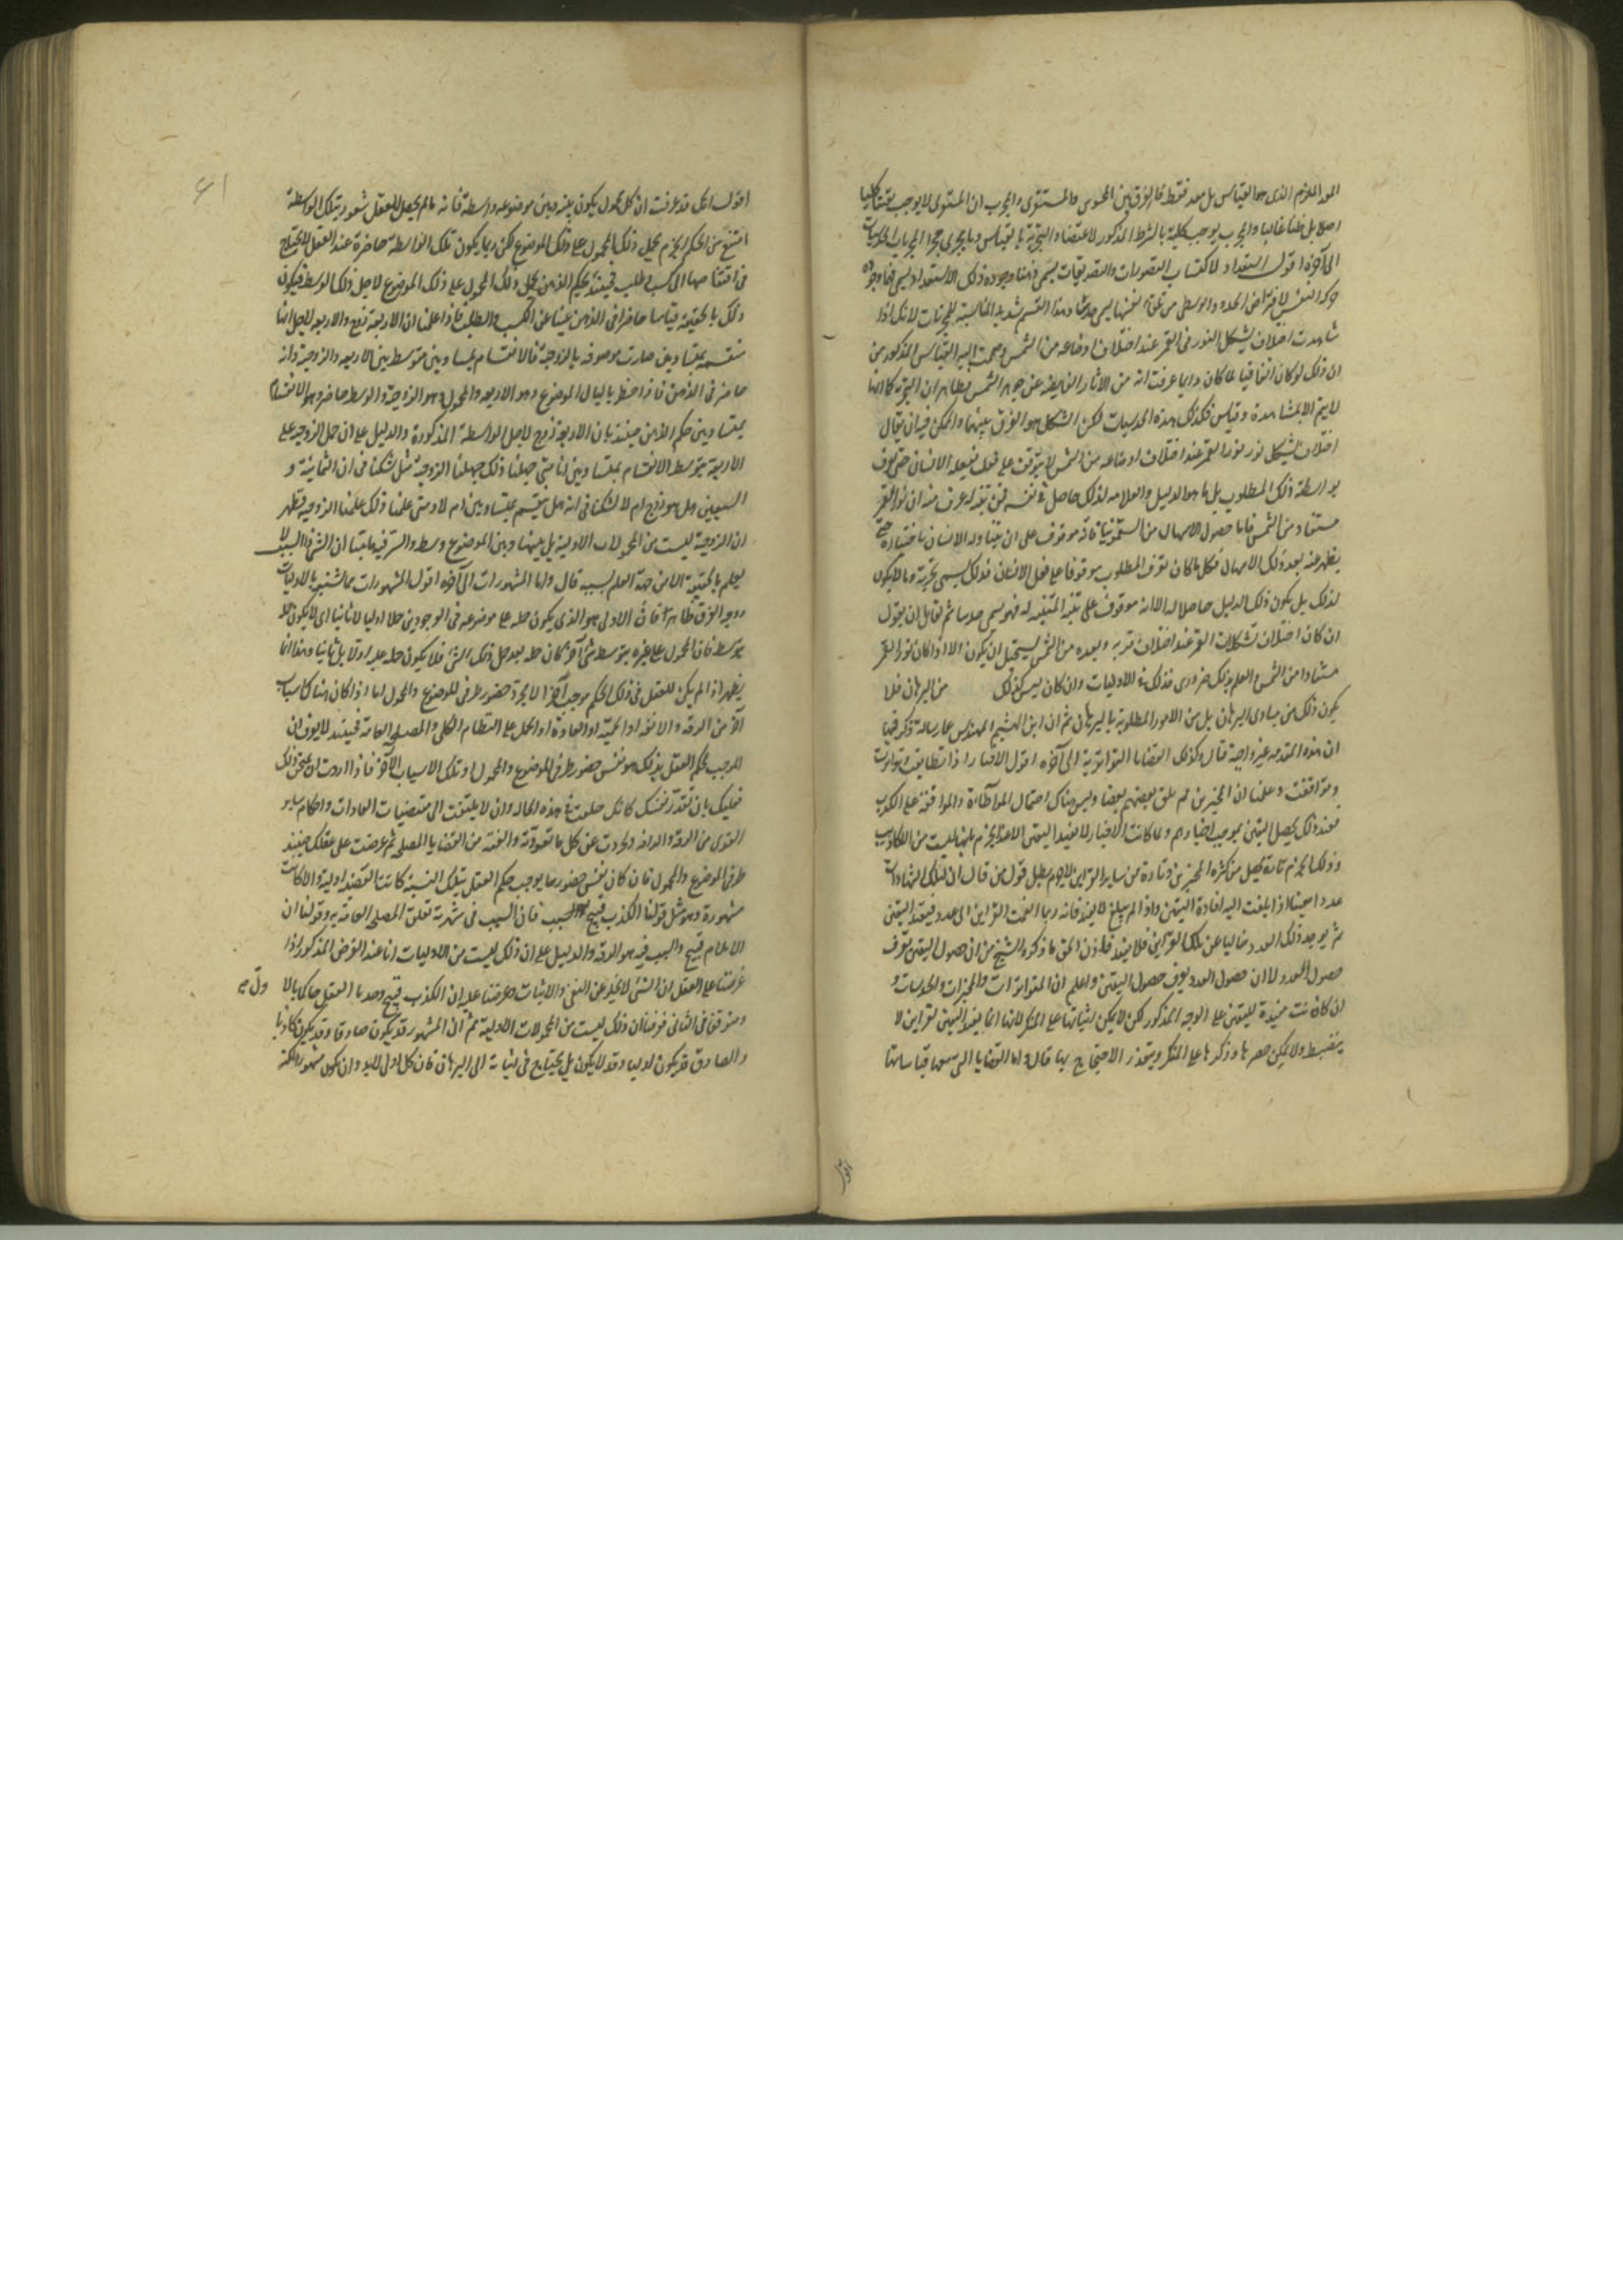 الذى هو القياس بل هو فقط فالفرق بين المحسوس والمستقرى والمجرب ان المستقرى لا يوجب
اصلا بل ظنا غالبا والمجرب يوجب كلية بالشرط المذكور لاعتضاد التجربة بالقياس وما يجرى مجرى المجربات الحدسيات
الى آخره اقول استعداد لاكتساب التصورات والتصديقات يسمى ذهنا وجودة ذلك الاستعداد يسمى
حركة النفس الحدود الوسطى من يسمى حدسا وهذا القسم شديد المناسبة للمجربات لانك اذا
شاهدت اختلاف تشكل النور فى القمر عند اختلاف اوضاعه من الشمس اليه القياس المذكور من
ان ذلك لو كان اتفاقيا لما كان دايما عرفت انه من الاثار الفايضة عن جوهر الشمس ان التجربة كما انها
لا يتم الا بمشاهدة وقياس فكذلك هذه الحدسيات لكن المشكل هو الفرق بينهما والممكن فيه ان يقال
اختلاف تشكل نور القمر عند اختلاف اوضاعه من الشمس لا يتوقف على فعل يفعله الانسان حتى يعرف
بواسطة ذلك المطلوب بل ما هو الدليل والعلامة لذلك حاصل فى نفسه فمن تنبه له عرف منه ان نور القمر
مستفاد من الشمس فاما حصول الاسهال من السقمونيا فانه موقوف على ان يتناوله الانسان باختياره حتى
يظهر عنه بعد ذلك الاسهال فكل ما كان تعرف المطلوب موقوفا على فعل الانسان فذلك يسمى تجربة وما لا يكون
كذلك بل يكون ذلك الدليل حاصلا له الا انه موقوف على تنبه المتنبه له فهو يسمى حدسا ثم لقايل ان يقول
ان كان اختلاف تشكلات القمر عند اختلاف قربه وبعده من الشمس يستحيل ان يكون الا اذا كان نور القمر
مستفادا من الشمس العلم بذلك ضرورى فذلك فى الاوليات وان كان ليس كذلك من البرهان فلا
يكون ذلك من مبادى البرهان بل من الامور المطلوبة بالبرهان ثم ان ابن الهيثم المهندس عمل رسالة ذكر فيها
ان هذه المقدمة غير واجبة قال وكذلك القضايا التواترية الى آخره اقول الاخبار اذا تطابقت وتواترت
وتوافقت وعلمنا ان المخبرين لم يلق بعضهم بعضا وليس هناك احتمال المواطاة والموافقة على الكذب
فعند ذلك يحصل اليقين بموجب اخبارهم ولما كانت الاخبار لا تفيد اليقين الا عند الجزم بانها ليست من الاكاذيب
وذلك الجزم تارة يحصل من كثرة المخبرين وتارة من ساير القراين لا جرم بطل قول من قال ان لتلك الشهادات
عددا معينا اذا بلغت اليه افادة اليقين واذا لم يبلغ لا يفيد فانه ربما انضمت القراين الى عدد فيفيد اليقين
ثم يوجد ذلك العدد خاليا عن تلك القراين فلا يفيد فاذن الحق ما ذكره الشيخ من ان حصول اليقين يعرف
حصول العدد لا ان حصول العدد يعرف حصول اليقين واعلم ان المتواترات والمجربات والحدسيات و
ان كانت مفيدة لليقين على الوجه المذكور لكن لا يمكن اثباتها على المنكر لانها انما يفيد اليقين لقراين لا
ينضبط ولا يمكن حصرها وذكرها على المنكر ويتعذر الاحتجاج بها قال واما القضايا التى معها قياساتها
اقول
61
اقول انك قد عرفت ان كل محمول يكون بينه وبين موضوعه واسطة فانه ما لم يحصل للعقل شعور بتلك الواسطة
امتنع من الحكم الجزم بحمل ذلك المحمول على ذلك الموضوع لكن ربما يكون تلك الواسطة حاضرة عند العقل لا يحتاج
فى اقتناصها الى كسب وطلب فحينئذ يحكم الذهن بحمل ذلك المحمول على ذلك الموضوع لاجل ذلك الوسط فيكون
ذلك بالحقيقة قياسا حاضرا فى الذهن غنيا عن الكسب والطلب فاذا علمنا ان الاربعة زوج والاربعة لاجل انها
منقسمة بمتساويين صارت موصوفة بالزوجية فالانقسام بمتساويين متوسط بين الاربعة والزوجية وانه
حاضر فى الذهن فاذا خطر بالبال الموضوع وهو الاربعة والمحول وهو الزوجية والوسط حاضر وهو الانقسام
بمتساويين حكم الذهن حينئذ بان الاربعة زوج لاجل الواسطة المذكورة والدليل على ان حمل الزوجية على
الاربعة بتوسط الانقسام بمتساويين انا متى جهلنا ذلك جهلنا الزوجية مثل شكنا فى ان الثمانية و
السبعين هل هو زوج ام لا لشكنا فى انه هل ينقسم بمتساويين ام لا ومتى علمنا ذلك علمنا الزوجية فظهر
ان الزوجية ليست من المحمولات الاولية بل بينها وبين الموضوع وسط والسر فيه ما بينا ان الشىء ذا السبب لا
يعلم بالحقيقة الا من جهة العلم بسببه قال واما المشهورات الى آخره اقول المشهورات مما تشتبه بالاوليات
ووجه الفرق ظاهر فان الاولى هو الذى يكون حمله على موضوعه فى الوجودين حملا اوليا لا ثانيا اى لا يكون حمله
بتوسط فان المحمول على غيره بتوسط شىء آخر كان حمله بعد حمل ذلك الشىء فلا يكون حمله عليه اولا بل ثانيا وهذا انما
يظهر اذا لم يكن للعقل فى ذلك الحكم موجب آخر الا بمجرد حضور طرفى الموضوع والمحمول اما اذا كان هناك اسباب
اخر من الرقة والانفة او الحمية او العادة او الحمل على النظام الكلى والمصلحة العامة فحينئذ لا يعرف ان
الموجب لحكم العقل بذلك هو نفس حضور طرفى الموضوع والمحمول او تلك الاسباب الآخر فاذا اردت ان تمتحن ذلك
فعليك بان تقدر نفسك كانك خلقت فى هذه الحالة وان لا يلتفت الى مقتضيات العادات واحكام ساير
القوى من الرقة والرافة وتجردت عن كل ما تعودته والفته من القضايا المصلحية ثم عرضت على عقلك حينئذ
طرفى الموضوع والمحمول فان كان نفس حضورهما يوجب حكم العقل بتلك النسبة كانت القضية اولية والا كانت
مشهورة وهو مثل قولنا الكذب قبيح فان السبب فى شهرته تعلق المصلحة العامة به وقولنا ان
الايلام قبيح والسبب فيه هو الرقة والدليل على ان ذلك ليست من الاوليات انا عند الفرض المذكور اذا
عرضنا على العقل ان الشىء لا يخلو عن النفى والاثبات وعرضنا عليه ان الكذب قبيح وجدنا العقل حاكما بالاول
ومتوقفا فى الثانى فعرفنا ان ذلك ليست من المحمولات الاولية ثم ان المشهور قد يكون صادقا وقد يكون كاذبا
والصادق قد يكون اوليا وقد لا يكون بل يحتاج فى اثباته الى البرهان فان كل اولى لابد وان يكون مشهورا